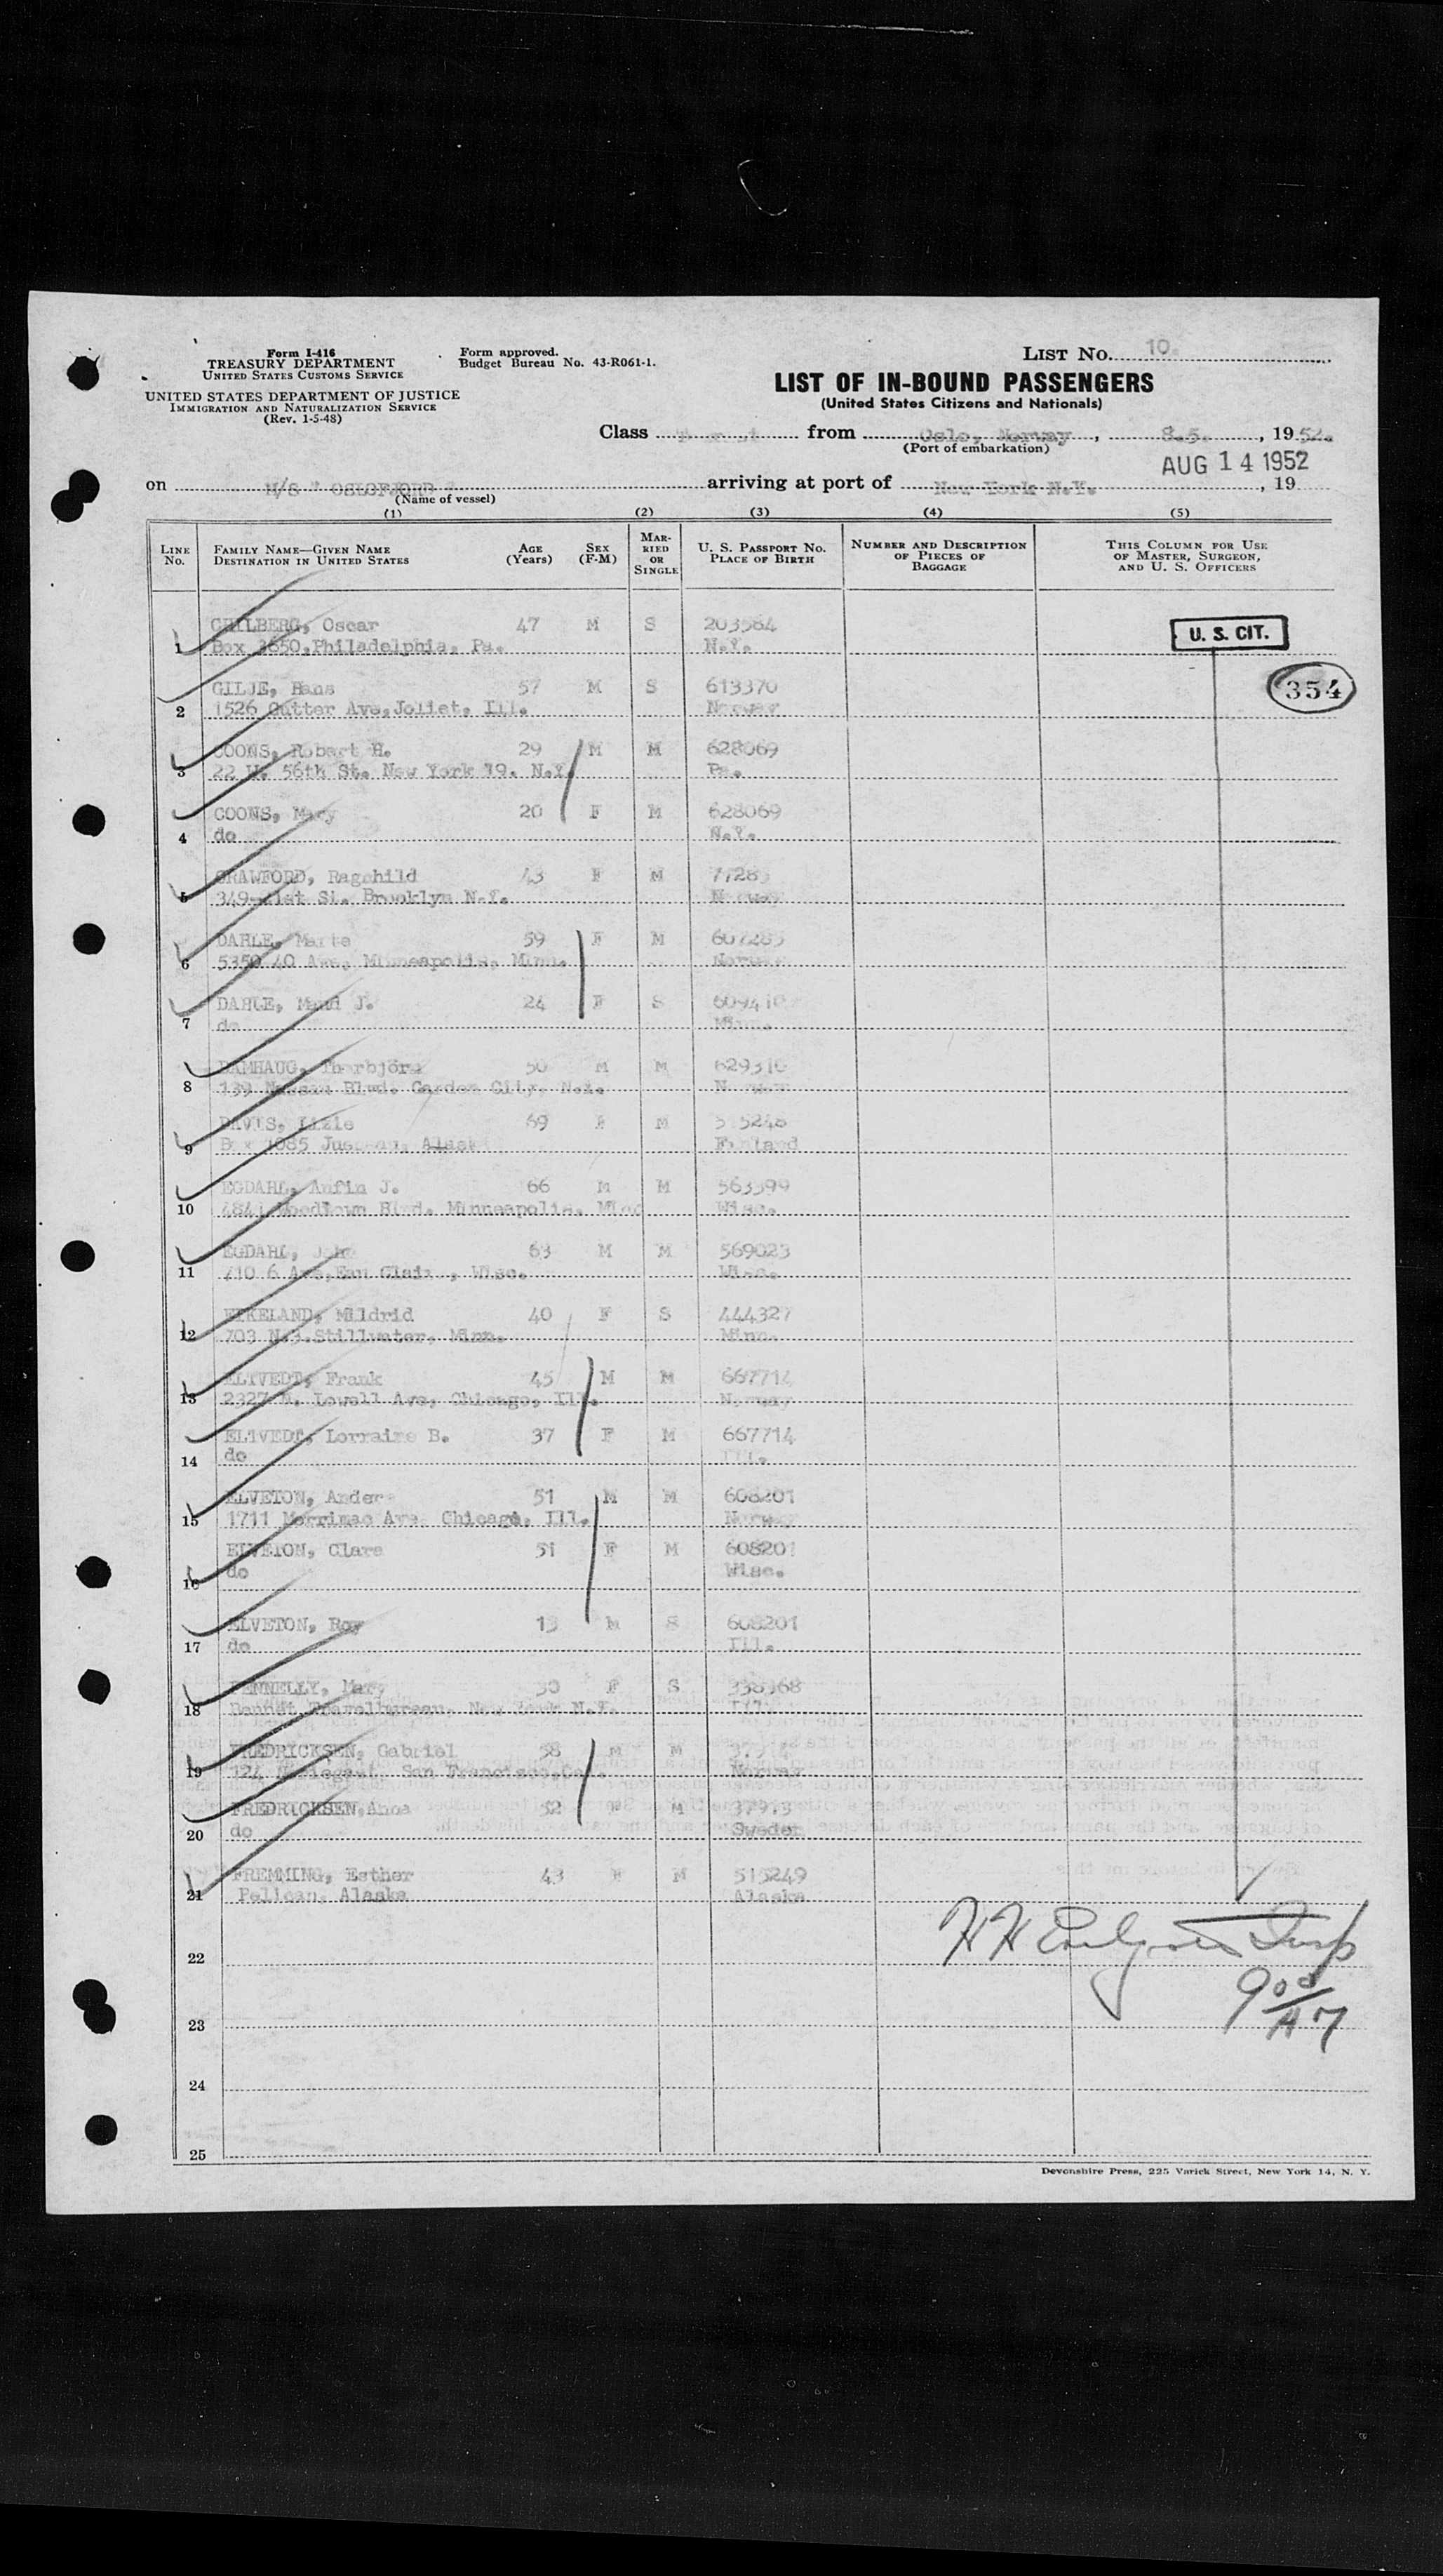 Form I-416
TREASURY DEPARTMENT
UNITED STATES CUSTOMS SERVICE
UNITED STATES DEPARTMENT OF JUSTICE
IMMIGRATION AND NATURALIZATION SERVICE
(Rev. 1-5-48)
Form approved.
Budget Bureau No. 43-R061-1.
LIST No. 10.
LIST OF IN-BOUND PASSENGERS
(United States Citizens and Nationals)
Class from Oslo, Norway, 8.5., 1952.
(Port of embarkation)
AUG 14 1952
on M/S " OSLOFJORD " arriving at port of New York N.Y., 19
(Name of vessel)
(1) (2) (3) (4) (5)
LINE No. FAMILY NAME—GIVEN NAME DESTINATION IN UNITED STATES AGE (Years) SEX (F-M) MARRIED OR SINGLE U. S. PASSPORT No. PLACE OF BIRTH NUMBER AND DESCRIPTION OF PIECES OF BAGGAGE THIS COLUMN FOR USE OF MASTER, SURGEON, AND U. S. OFFICERS
Oscar 47 M S 203584 U. S. CIT.
1 Box 3650, Philadelphia, Pa. N.Y.
GILJE, Hans 57 M S 613370 354
2 1526 Cutter Ave, Joliet, Ill. Norway
COONS, Robert H. 29 M M 628069
3 22 W. 56th St. New York 19. N.Y. Pa.
COONS, Mary 20 F M 628069
4 do N.Y.
CRAWFORD, Ragnhild 43 F M
5 St. Brooklyn N.Y. Norway
DAHLE, Marte 59 F M
6 5350 40 Ave, Minneapolis, Minn. Norway
DAHLE, J. 24 F S
7 do Minn.
DAMHAUG, Thorbjörn 50 M M 629310
8 139 Nassau Blvd. Garden City, N.Y. Norway
DAVIS, 69 F M
9 Box 1085 Alaska Finland
EGDAHL, Anfin J. 66 M M 563399
10 Minneapolis, Wisc.
EGDAHL, John 63 M M 569023
11 710 6 Ave, Eau Claire, Wisc. Wisc.
EIKELAND, Mildrid 40 F S 444327
12 703 N.3. Stillwater, Minn. Minn.
ELTVEDT, Frank 45 M M 667714
13 2327 N. Lowell Ave, Chicago, Ill. Norway
ELTVEDT, Lorraine B. 37 F M 667714
14 do Ill.
ELVETON, Anders 51 M M 608201
15 1711 Merrimac Ave Chicago, Ill. Norway
ELVETON, Clara 51 F M 608201
16 do Wisc.
ELVETON, Roy 13 M S 608201
17 do Ill.
Mary F S
18 Travelbureau, New York N.Y. Ill.
FREDRICKSEN, Gabriel 58 M M
19 San Francisco, Cal. Norway
FREDRICKSEN, Anna 52 F M
20 do Sweden
FREMMING, Esther 43 F M 515249
21 Pelican, Alaska Alaska
22
23
9 00 AM
24
25
Devonshire Press, 225 Varick Street, New York 14, N. Y.